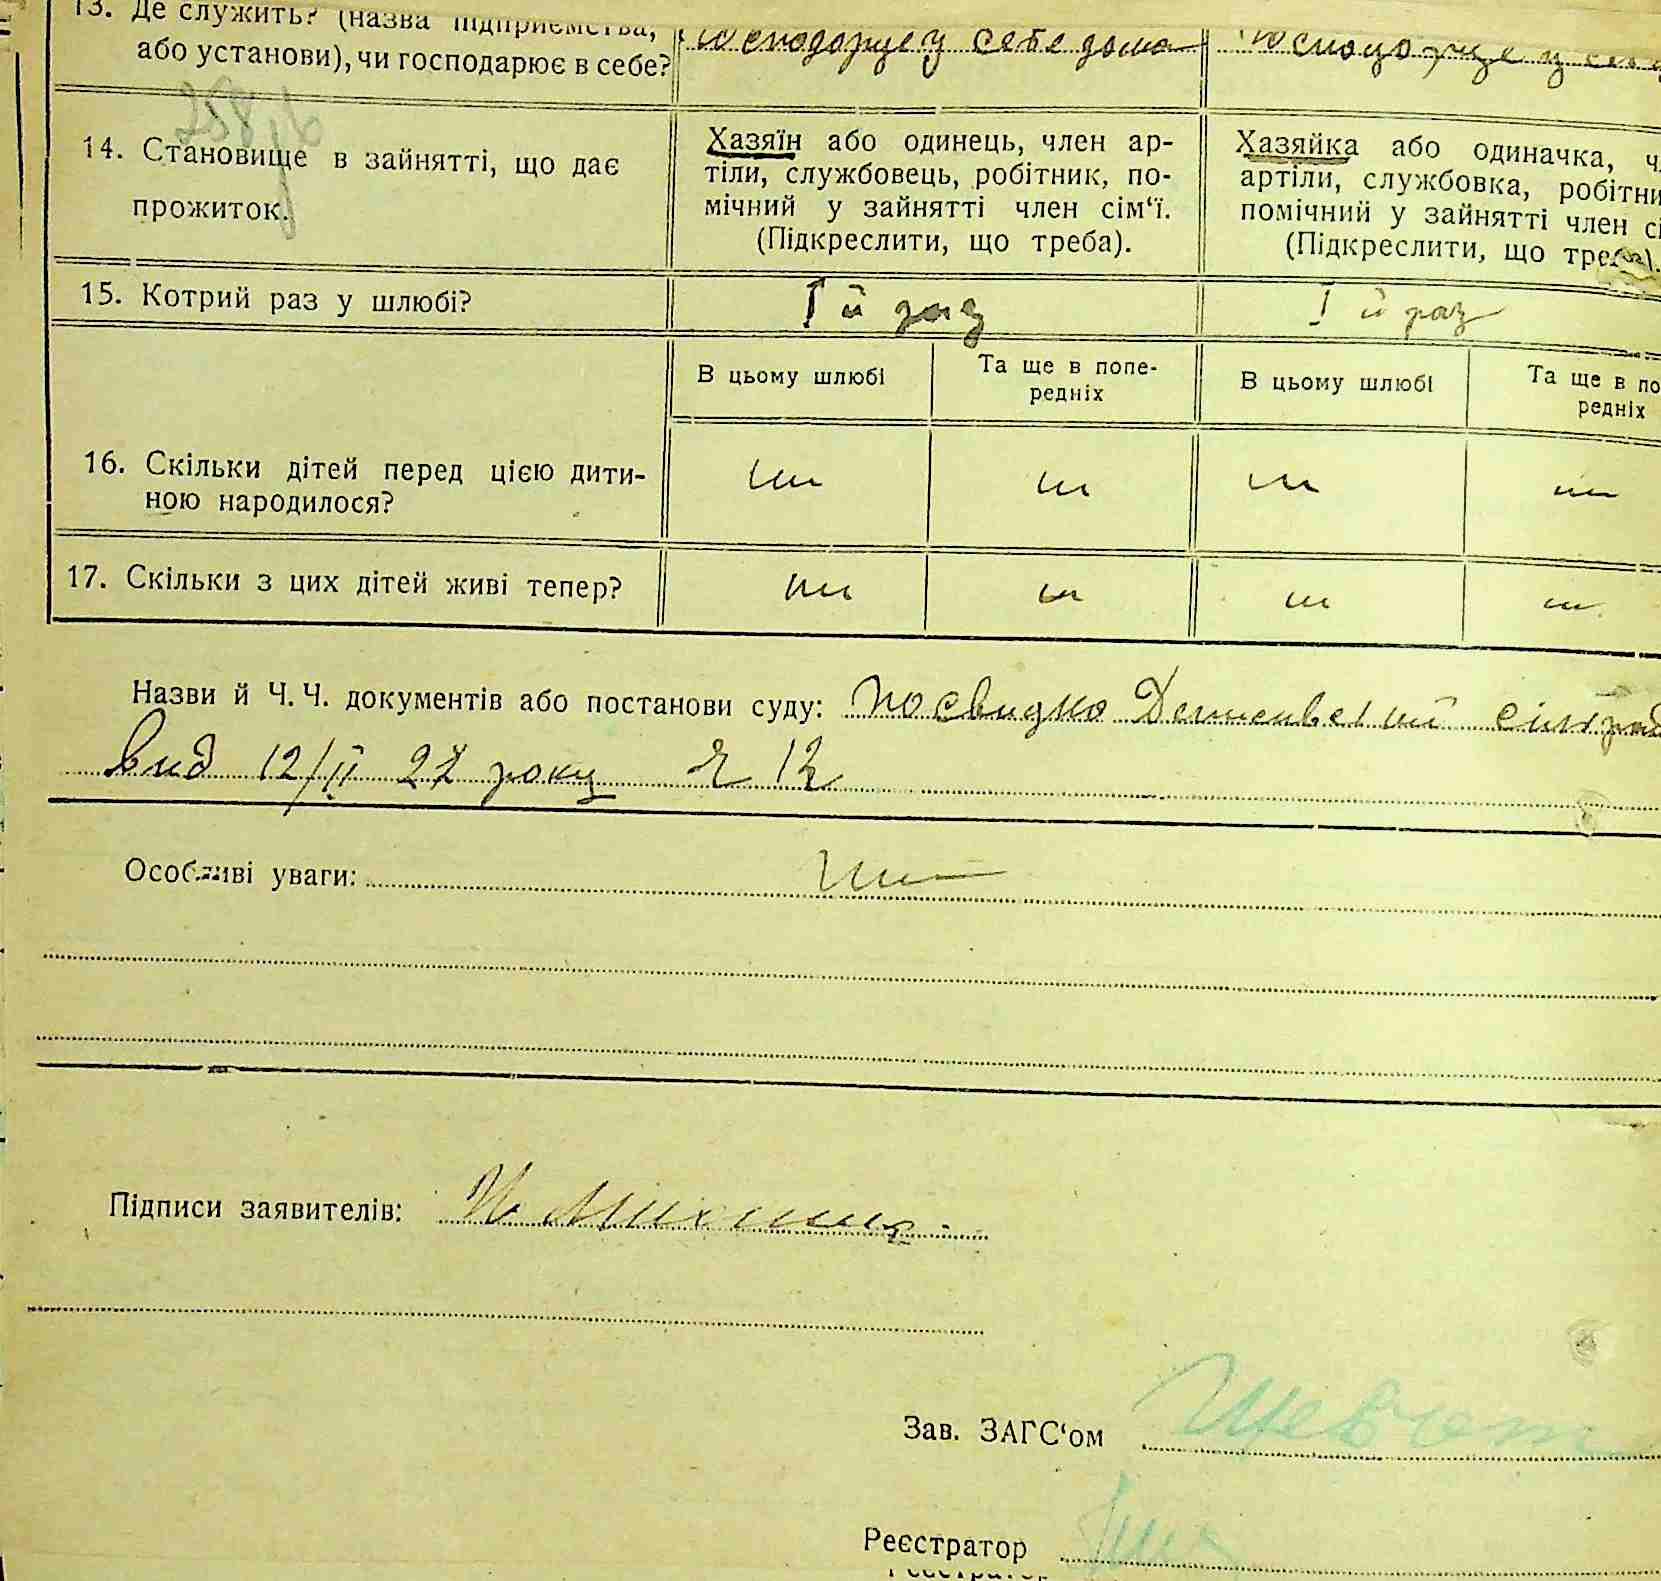 13. Де служить? (назва підприємства,
або установи), чи господарює в себе?
господарще у себе дома
14. Становище в зайнятті, що дає
прожиток.
Хазяїн або одинець, член ар-
тіли, службовець, робітник, по-
мічний у зайнятті член сім‘ї.
(Підкреслити, що треба).
Хазяйка або одиначка, ч
артіли, службовка, робітни
помічний у зайнятті член сі
(Підкреслити, що треба).
15. Котрий раз у шлюбі?
I й раз
I й раз
В цьому шлюбі
Та ще в попе-
редніх
В цьому шлюбі
Та ще в по
редніх
16. Скільки дітей перед цією дити-
ною народилося?
17. Скільки з цих дітей живі тепер?
Назви й Ч.Ч. документів або постанови суду: посвидко
вид 12/II 27 року № 12
Особливі уваги:
Підписи заявителів:
Зав. ЗАГС‘ом
Реєстратор